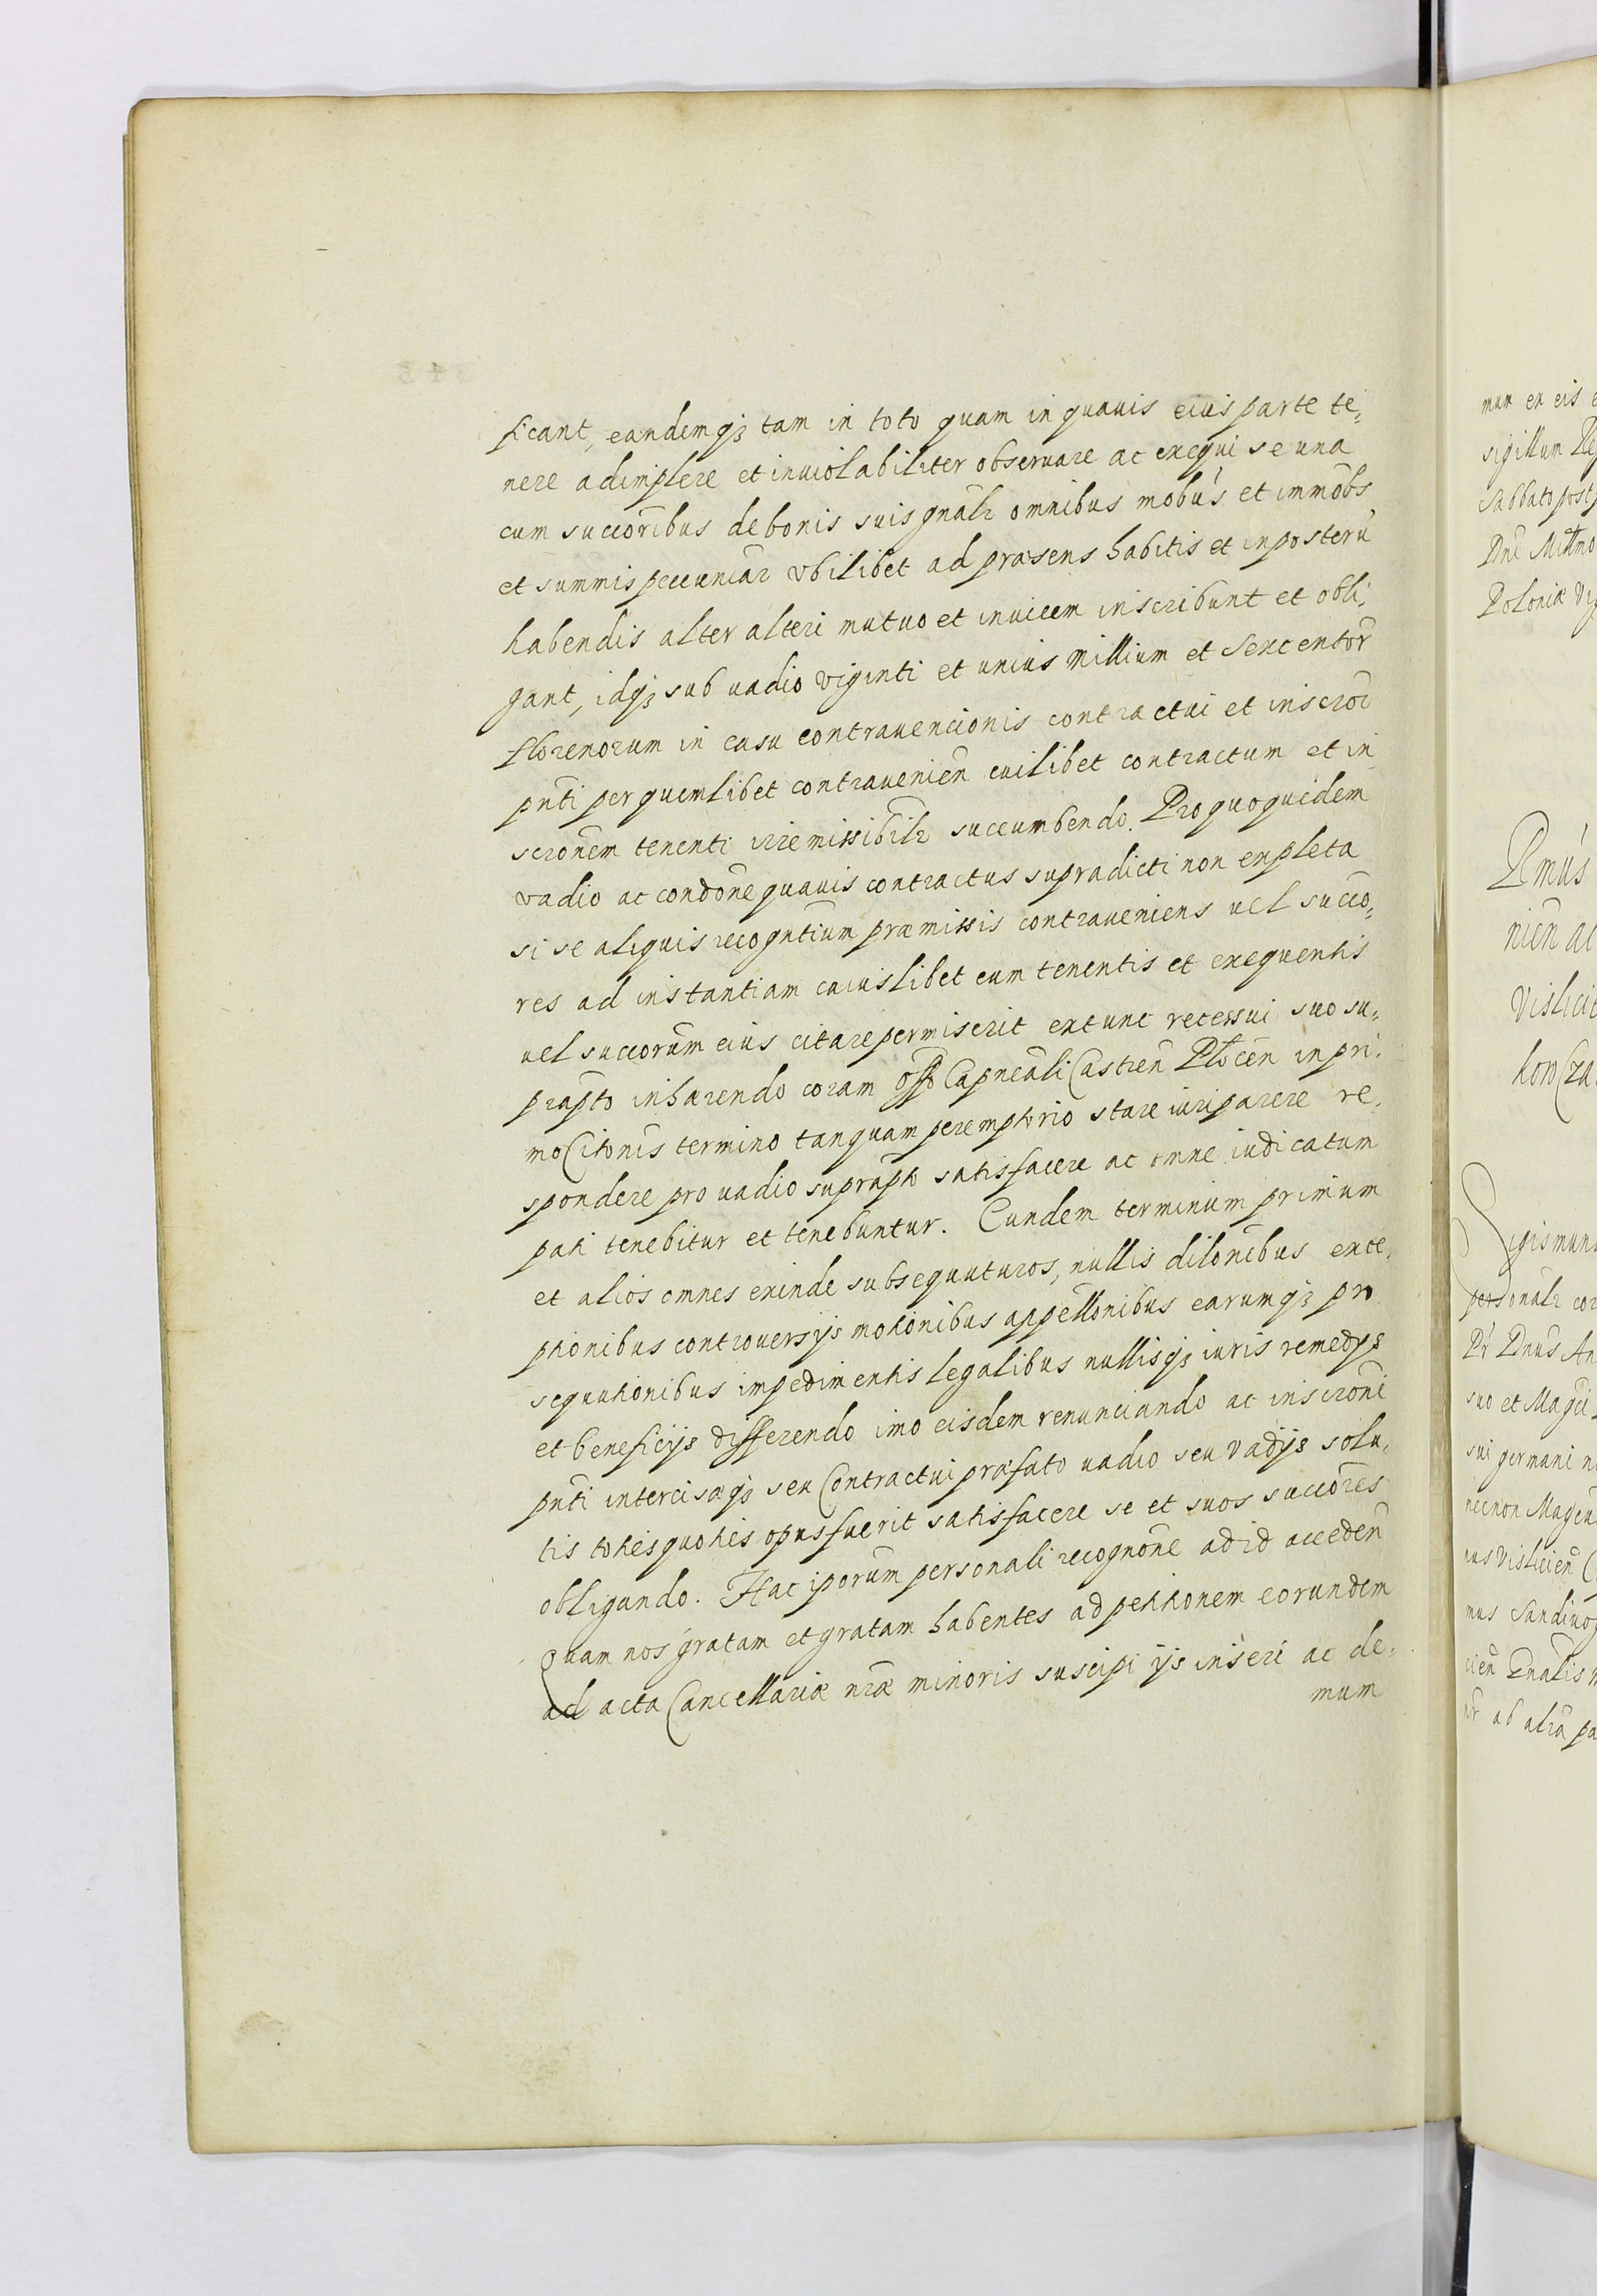 ficant, eandemqꝫ tam in toto quam in quauis eius parte te„
nere adimplere et inuiolabiliter obseruare ac exequi se una
cum succōribus de bonis suis gnālr omnibus mobūs et immōbs
et summis pecuniār vbilibet ad præsens habitis et inposterū
habendis alter alteri mutuo et inuicem inscribunt et obli„
gant, idqꝫ sub uadio viginti et unius Millium et Sexcentōr
florenorum in casu contrauencionis contractui et inscrōī
pn̄ti per quemlibet contraueniēn cuilibet contractum et in
scrōnem tenenti irremissibīlr succumbendo. Pro quoquidem
vadio ac condōne quauis contractus supradicti non expleta
si se aliquis recogn̄tium præmissis contraueniens uel succo„
res ad instantiam cuiuslibet eum tenentis et exequentis
uel succorūm eius citare permiserit extunc recessui suo su„
prap̄to inhærendo coram offō Capneāli Castrēn Plocēn in pri„
mo Citōnis termino tanquam peremptorio stare iuri parere re„
spondere pro uadio suprap̄to satisfacere ac omne iudicatum
pati tenebitur et tenebuntur. Eundem terminum primum
et alios omnes exinde subsequuturos, nullis dilōnibus exce„
ptionibus controuersijs motionibus appellōnibus earumqꝫ pro
sequutionibus impedimentis legalibus nullisqꝫ iuris remedijs
et beneficijs differendo imo eisdem renunciando ac inscrōni
pn̄ti intercisæqꝫ seu Contractui præfato uadio seu vadijs solu„
tis toties quoties opus fuerit satisfacere se et suos succōres
obligando. Hac ip̄orum personali recognōne ad id accedēn
Quam nos gratam et gratam habentes ad petitionem eorundem
ad acta Cancellariæ nr̄æ minoris suscipi ijs inseri ac de„
mum
mum ex eis e
sigillum Re
Sabbato post
Dnī Mill̄mo
Poloniæ
Rmūs
niēn ac
Vislici
Sigismun
personalr cor
Dnūs An
suo et Magci
sui germani n
necnon Magcu
us Visliciēn
mus Sandiuo
ciēn
ab alīa pa